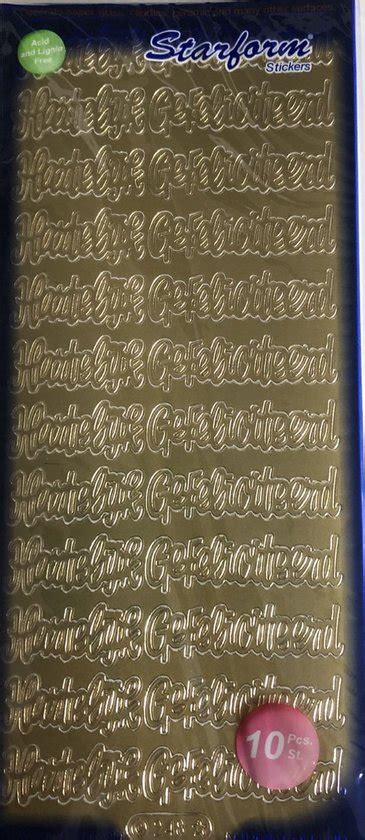 paper, glass, candles, ceramic and many other surfaces.
Acid
and Lignin
Free
Starform
Stickers
Hartelijk Gefeliciteerd
Hartelijk Gefeliciteerd
Hartelijk Gefeliciteerd
Hartelijk Gefeliciteerd
Hartelijk Gefeliciteerd
Hartelijk Gefeliciteerd
Hartelijk Gefeliciteerd
Hartelijk Gefeliciteerd
Hartelijk Gefeliciteerd
Hartelijk Gefeliciteerd
Hartelijk Gefeliciteerd
10 Pcs.
St.